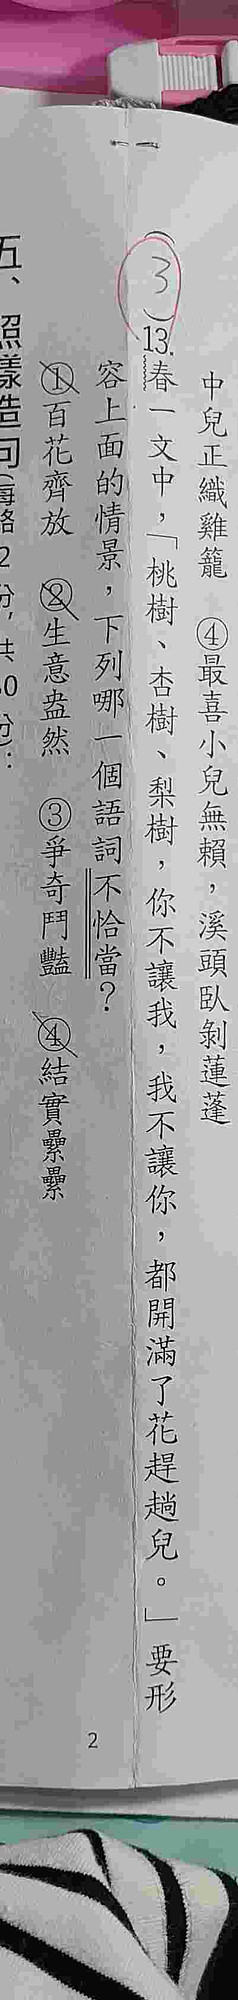 中兒正織雞籠　④最喜小兒無賴，溪頭臥剝蓮蓬
(3)13.春一文中，「桃樹、杏樹、梨樹，你不讓我，我不讓你，都開滿了花趕趟兒。」要形
容上面的情景，下列哪一個語詞不恰當？
①百花齊放　②生意盎然　③爭奇鬥豔　④結實纍纍
五、照樣造句(每格2分，共
2